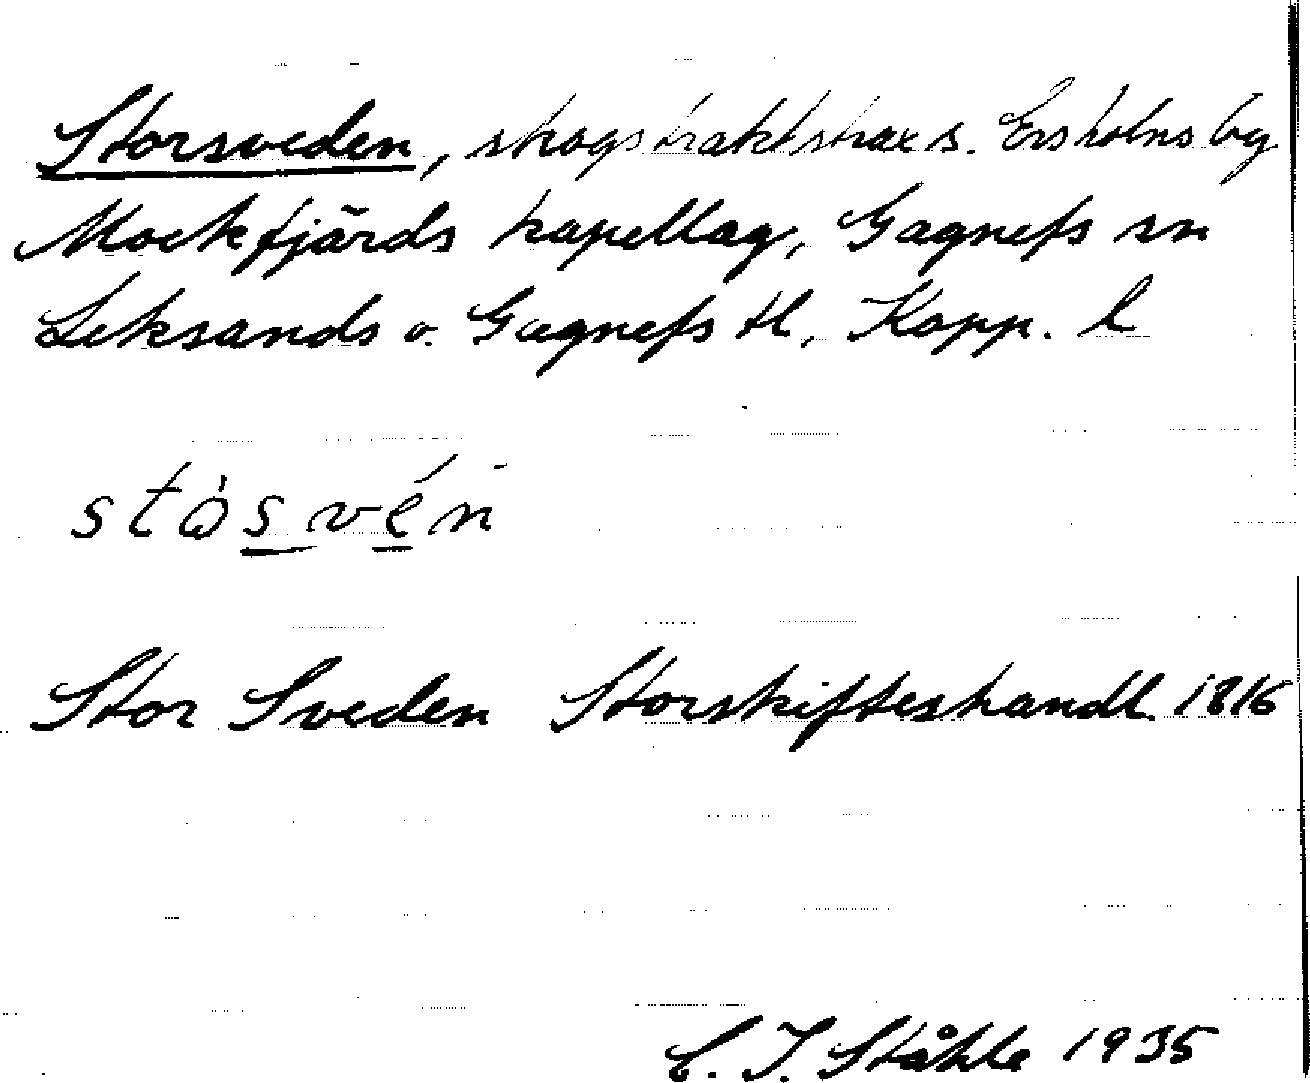 Storsveden, skogstrakt strax s. Ersholns by
Mockfjärds kapellag, Gagnefs sn
Leksands o. Gagnefs tl, Kopp. l
stòsvén
Stor Sveden Storskifteshandl. 1816
C. I. Ståhle 1935